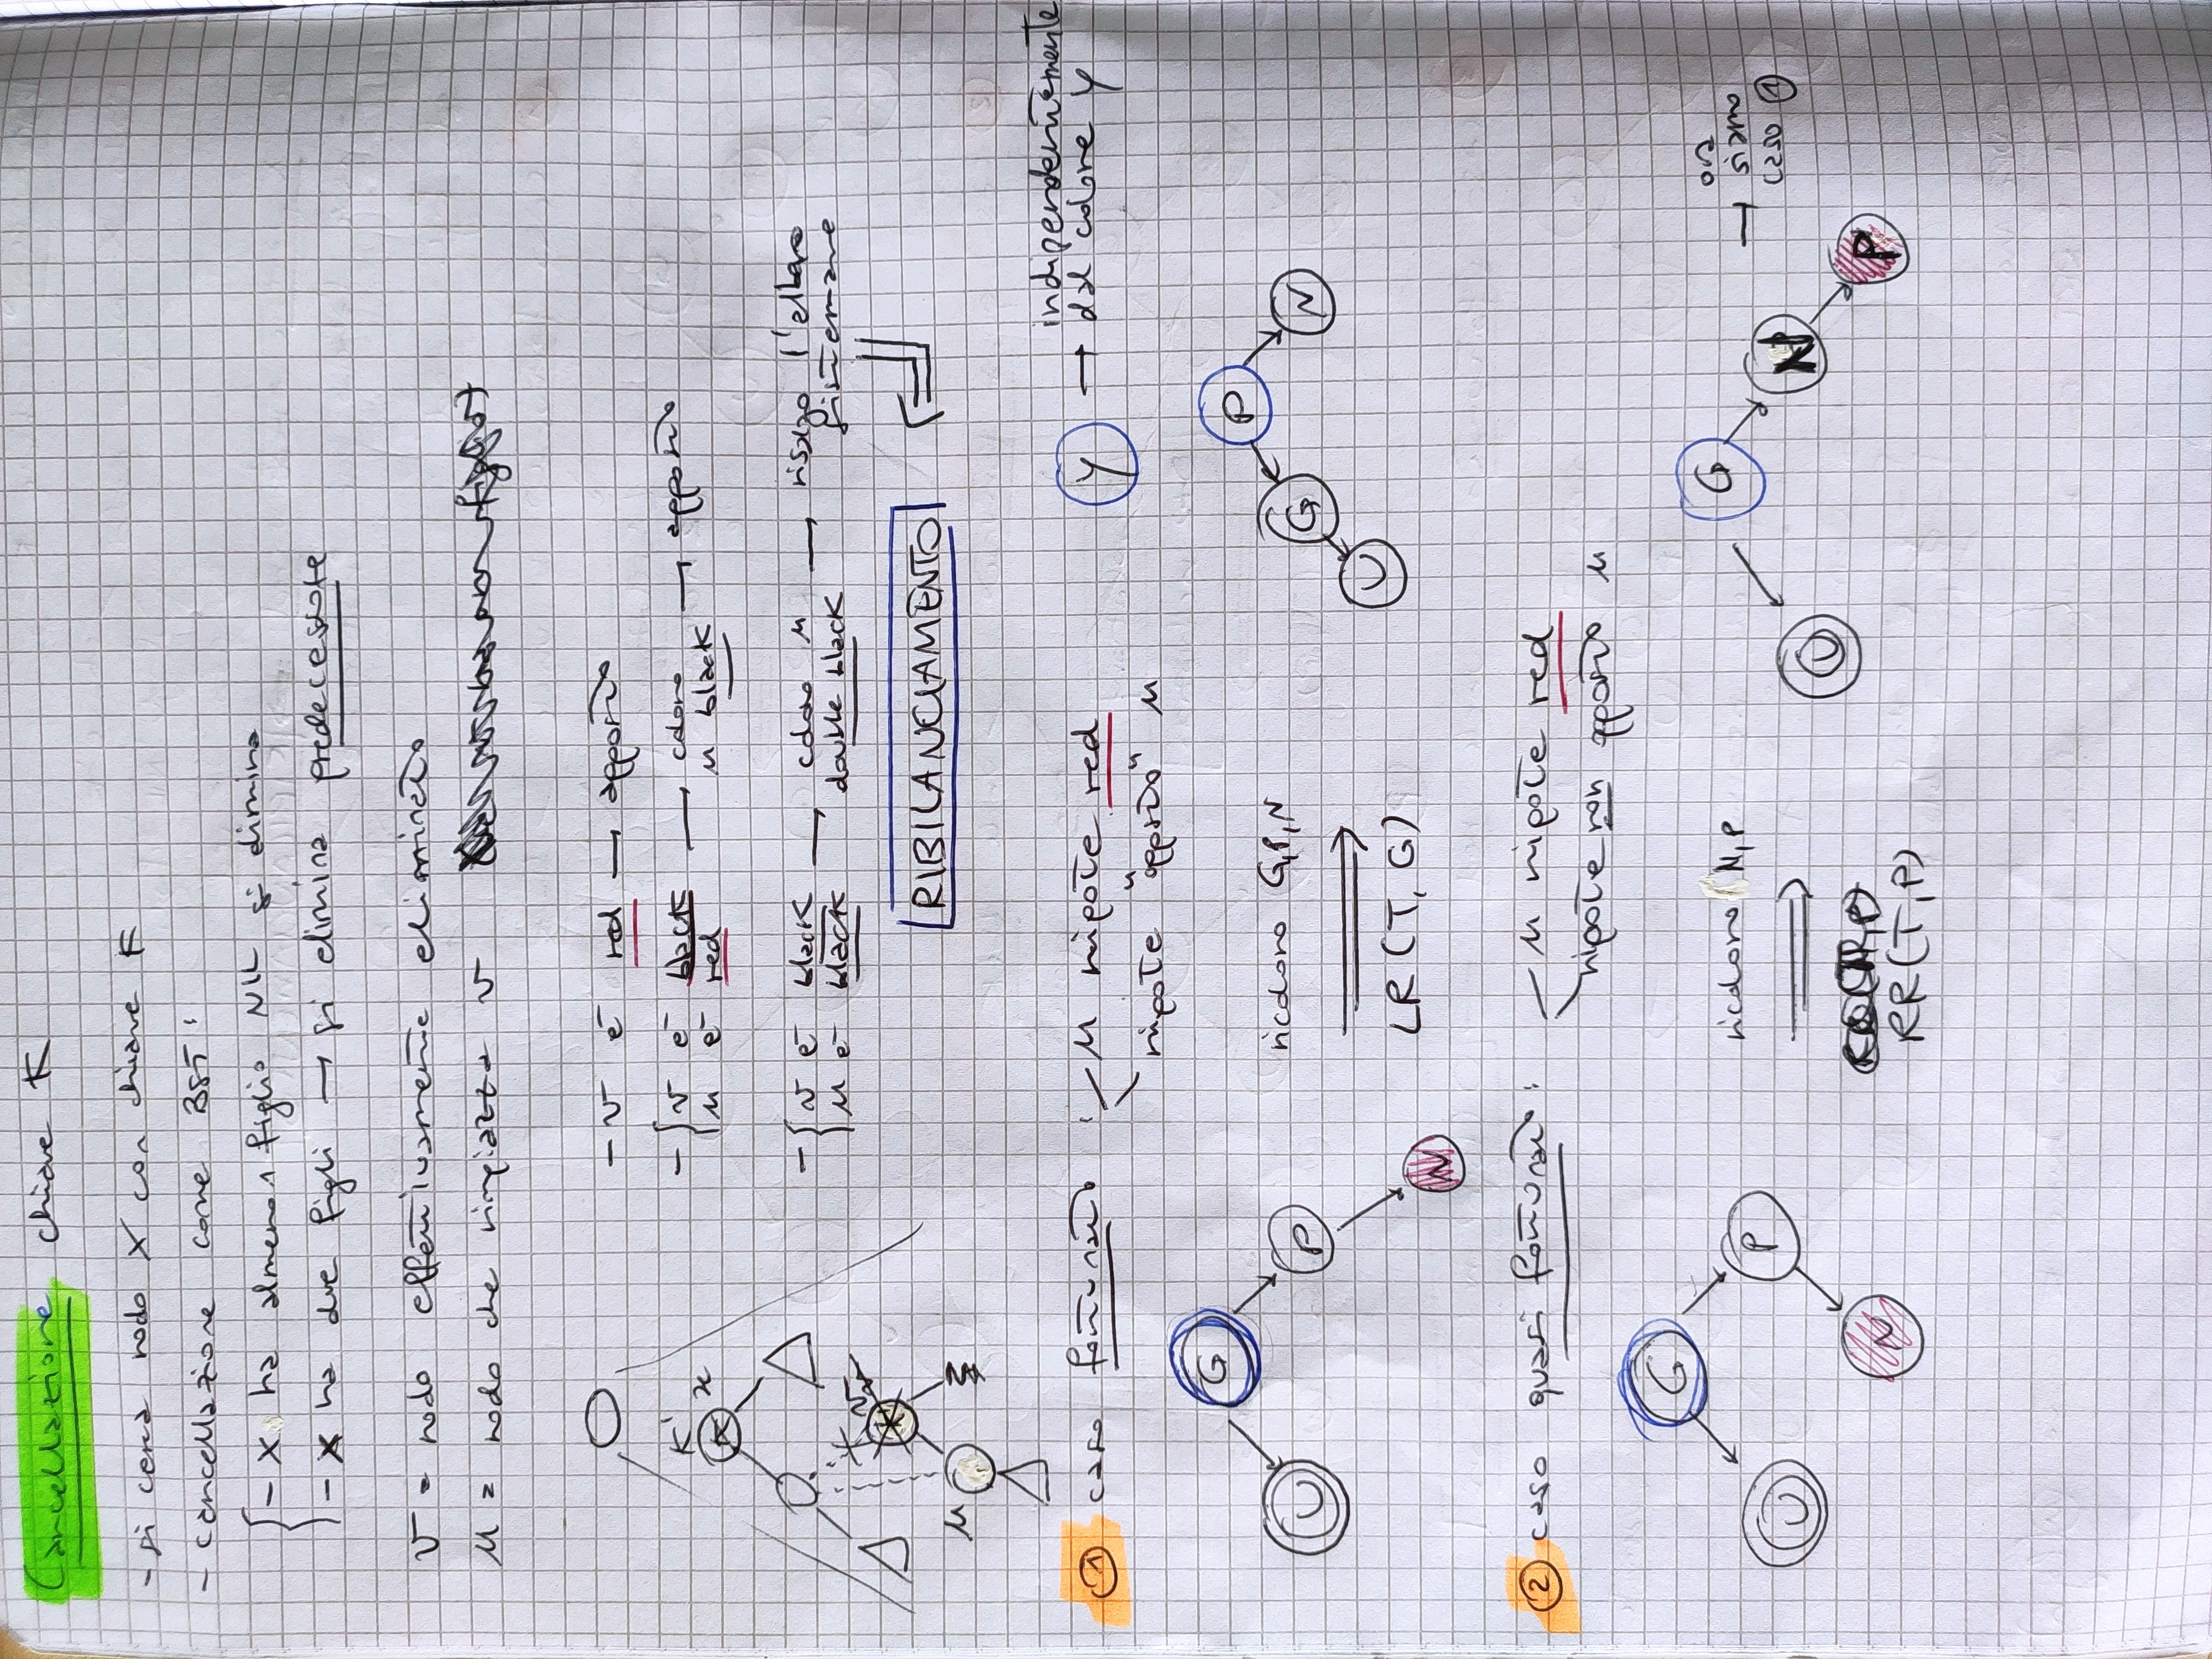 Cancellazione chiave K
- si cerca nodo X con chiave K
- cancellazione come BST:
- X ha almeno 1 figlio NIL si elimina
- X ha due figli → si elimina predecessore
v = nodo effettivamente eliminato
u = nodo che rimpiazza v
- v è red → apposto
- v è black → coloro → apposto
u è red u black
- v è black → coloro u → risalgo l'albero
u è black double black sistemare
K'
K x
v
u
RIBILANCIAMENTO
① caso fortunato : u nipote red
nipote "opposto" u
Y → indipendentemente
dal colore Y
G
U P
N
ricoloro G,P,N
LR(T, G)
P
G N
U
② caso quasi fortunato: u nipote red
nipote non opposto u
G
U P
N
ricoloro N,P
RR(T,P)
G
U N
P
→ ora
siamo
caso ①